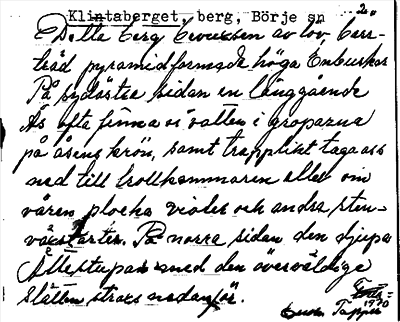 Klintaberget, berg, Börje sn 2.
Detta berg bevuxen av lov barr-
träd pyramidformade höga Enbuskar
På sydöstra sidan en långgående
Ås ofta finna vi vatten i groparna
på åsens krön, samt trapplikt taga oss
ned till trollkammaren eller om
våren plocka violer och andra sten-
växtarter. På norra sidan den djupa
Ättestupan med den överväldige
Slätten straks nedanför.
1930
Tapper